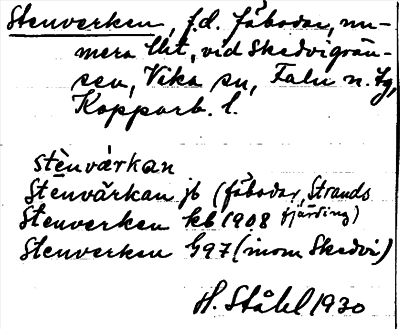 Stenverken, f.d. fäbodar, nu-
mera lht, vid Skedvigrän-
sen, Vika sn, Falu n. tg,
Kopparb. l.
stènvárkan
Stenvärkan jb (fäbodar, Strands
fjärding)
Stenverken kb 1908
Stenverken G97 (inom Skedvi)
H. Ståhl 1930